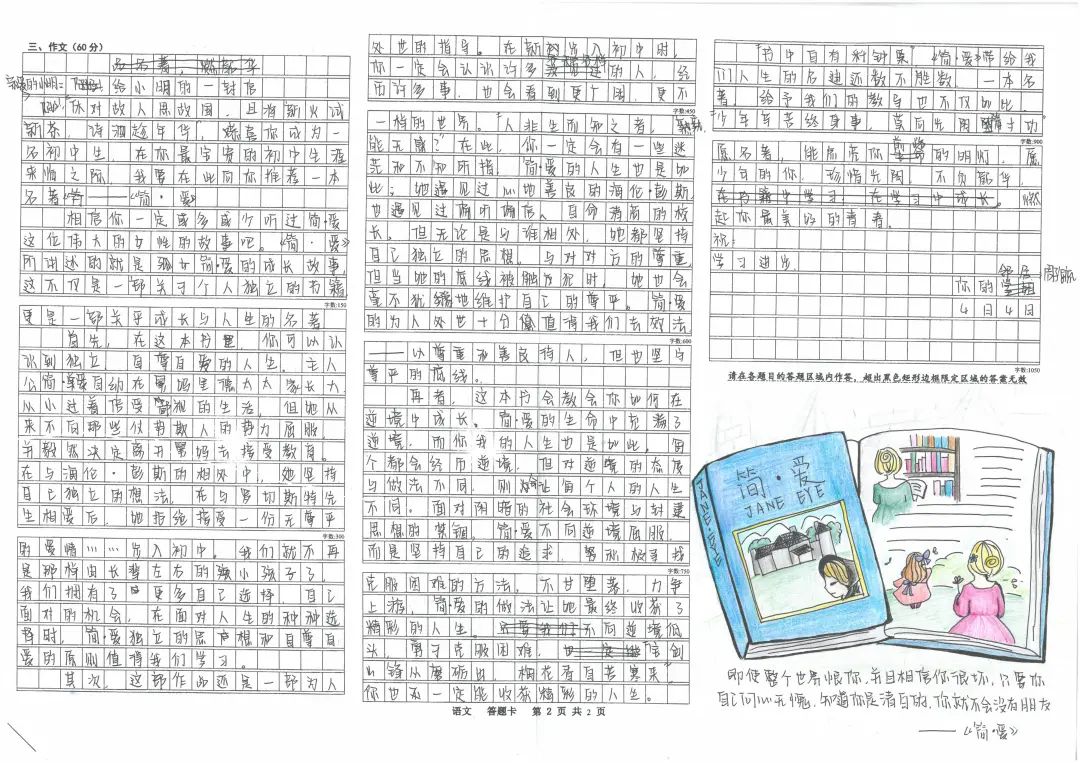 三、作文(60分)
给小明的一封信
"休对故人思故国，且将新火试
新茶，诗酒趁年华，恭喜你成为一
名初中生，在你最宝贵的初中生涯
来临之际，我要在此向你推荐一本
名著——《简·爱》
相信你一定或多或少听过简·爱
这位伟大的女性的故事吧。《简·爱》
所讲述的就是孤女简·爱的成长故事，
这不仅是一部关于个人独立的书籍
字数:150
更是一部关乎成长与人生的名著
首先，在这本书里，你可以认
识到独立、自尊自爱的人生。主人
公简·爱自幼在舅妈里德太太家长大
从小过着倍受鄙视的生活，但她从
来不向那些仗势欺人的势力屈服，
并毅然决定离开舅妈去接受教育。
在与海伦·彭斯的相处中，她坚持
自己独立的想法，在与罗切斯特先
生相爱后，她拒绝接受一份无尊严
字数:300
的爱情……步入初中。我们就不再
是那样由长辈左右的小孩子了，
我们拥有了更多自己选择，自己
面对的机会，在面对人生的种种选
择时，简·爱独立的思想和自尊自
爱的原则值得我们学习。
其次，这部作品还是一部为人
处世的指导。在新初步入初中时，
你一定会认识许多的人，经
历许多事，也会看到更个困，更不
字数:450
一样的世界。"人非生而知之者，孰
能无惑？"在此，你一定会有一些迷
茫和不知所措，简·爱的人生也是如
此；她遇见过心地善良的海伦·彭斯
也遇见过偏听偏信、自命清高的校
长。但无论是与谁相处，她都坚持
自己独立的思想。与对对方的尊重，
但当她的底线被触及犯时，她也会
毫不犹豫地维护自己的尊严。简·爱
的为人处世十分值得我们去效法
字数:600
——以尊重和善良待人，但也坚守
尊严的底线。
再者，这本书会教会你如何在
逆境中成长。简·爱的生命中充满了
逆境，而你我的人生也是如此，每
个都会经历逆境，但对逆境的态度
与做法不同，则会让每个人的人生
不同。面对困暗的社会环境与封建
思想的禁锢。简·爱不向逆境屈服，
而是坚持自己的追求，努力积极寻找
字数:750
克服困难的方法，不甘堕落，力争
上游，简·爱的做法让她最终收获了
精彩的人生。不向逆境低
头，勇于克服困难，"宝剑
锋从磨砺出，梅花香自苦寒来"
你也一定能收获精彩的人生。
语文 答题卡 第 2 页 共 2 页
"书中自有千钟粟"《简·爱》带给我
们人生的启迪还数不胜数，一本名
著，给予我们的教导也不仅如此，
"少年辛苦终身事，莫向光阴惰寸功
字数:900
愿名著，能点亮你的明灯，愿
少年的你，珍惜光阴，不负韶华，
在书籍中学习，在学习中成长。燃
起你最美好的青春。
祝：
学习进步
你的
邻居
4月4日
字数:1050
请在各题目的答题区域内作答，超出黑色矩形边框限定区域的答案无效
JANE·EYE
简·爱
JANE EYE
即使整个世界恨你，并且相信你很坏，只要你
自己问心无愧，知道你是清白的，你就不会没有朋友
——《简·爱》